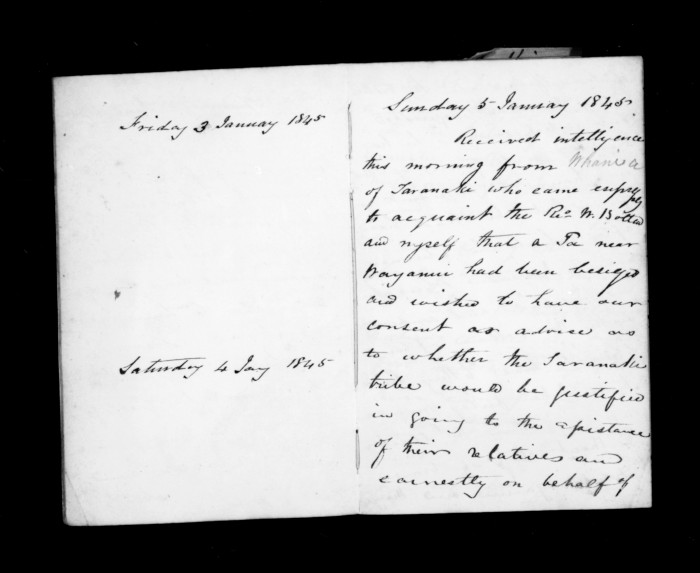 Friday 3 January 1845
Saturday 4 Jay 1845
Sunday 5 January 1845
Received intelligence
this morning from
of Taranaki who came expressly
to acquaint the Revd W. Bolland
and myself that a Pa near
Wanganui had been besiged
and wished to have our
consent or advise as
to whether the Taranaki
tribe would be justified
in going to the assistance
of their relatives and
earnestly on behalf of